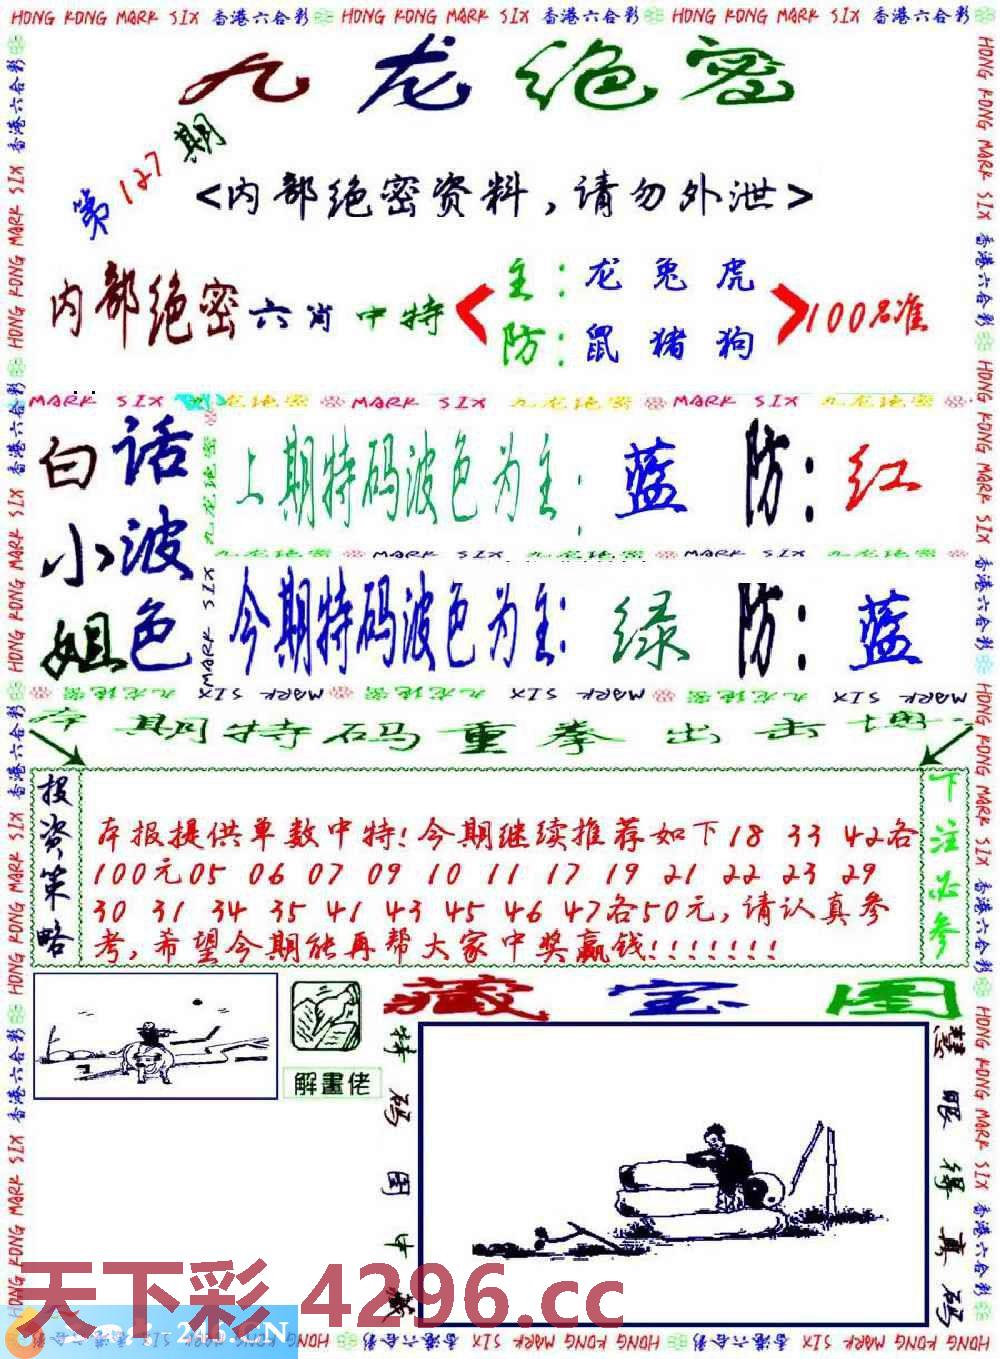 HONG KONG MARK SIX 香港六合彩 HONG KONG MARK SIX 香港六合彩 HONG KONG MARK SIX 香港六合彩
九龙绝密
第127期
<内部绝密资料,请勿外泄>
内部绝密六肖中特
主:龙 兔 虎
防:鼠 猪 狗
100%准
MARK SIX 九龙绝密 MARK SIX 九龙绝密 MARK SIX 九龙绝密
白小姐
话波色
上期特码波色为主:蓝 防:红
九龙绝密 MARK SIX 九龙绝密 MARK SIX 九龙绝密
今期特码波色为主:绿 防:蓝
本期特码重拳出击
投资策略
本报提供单数中特!今期继续推荐如下18 33 42各
100元05 06 07 09 10 11 17 19 21 22 23 29
30 31 34 35 41 43 45 46 47各50元,请认真参
考,希望今期能再帮大家中奖赢钱!!!!!!!
下注必参
藏宝图
解畫佬
特码图中藏
慧眼得真码
天下彩 4296.cc
246.CN